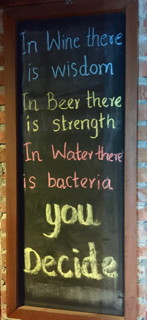 In Wine there
is wisdom
In Beer there
is strength
In Water there
is bacteria
you
Decide